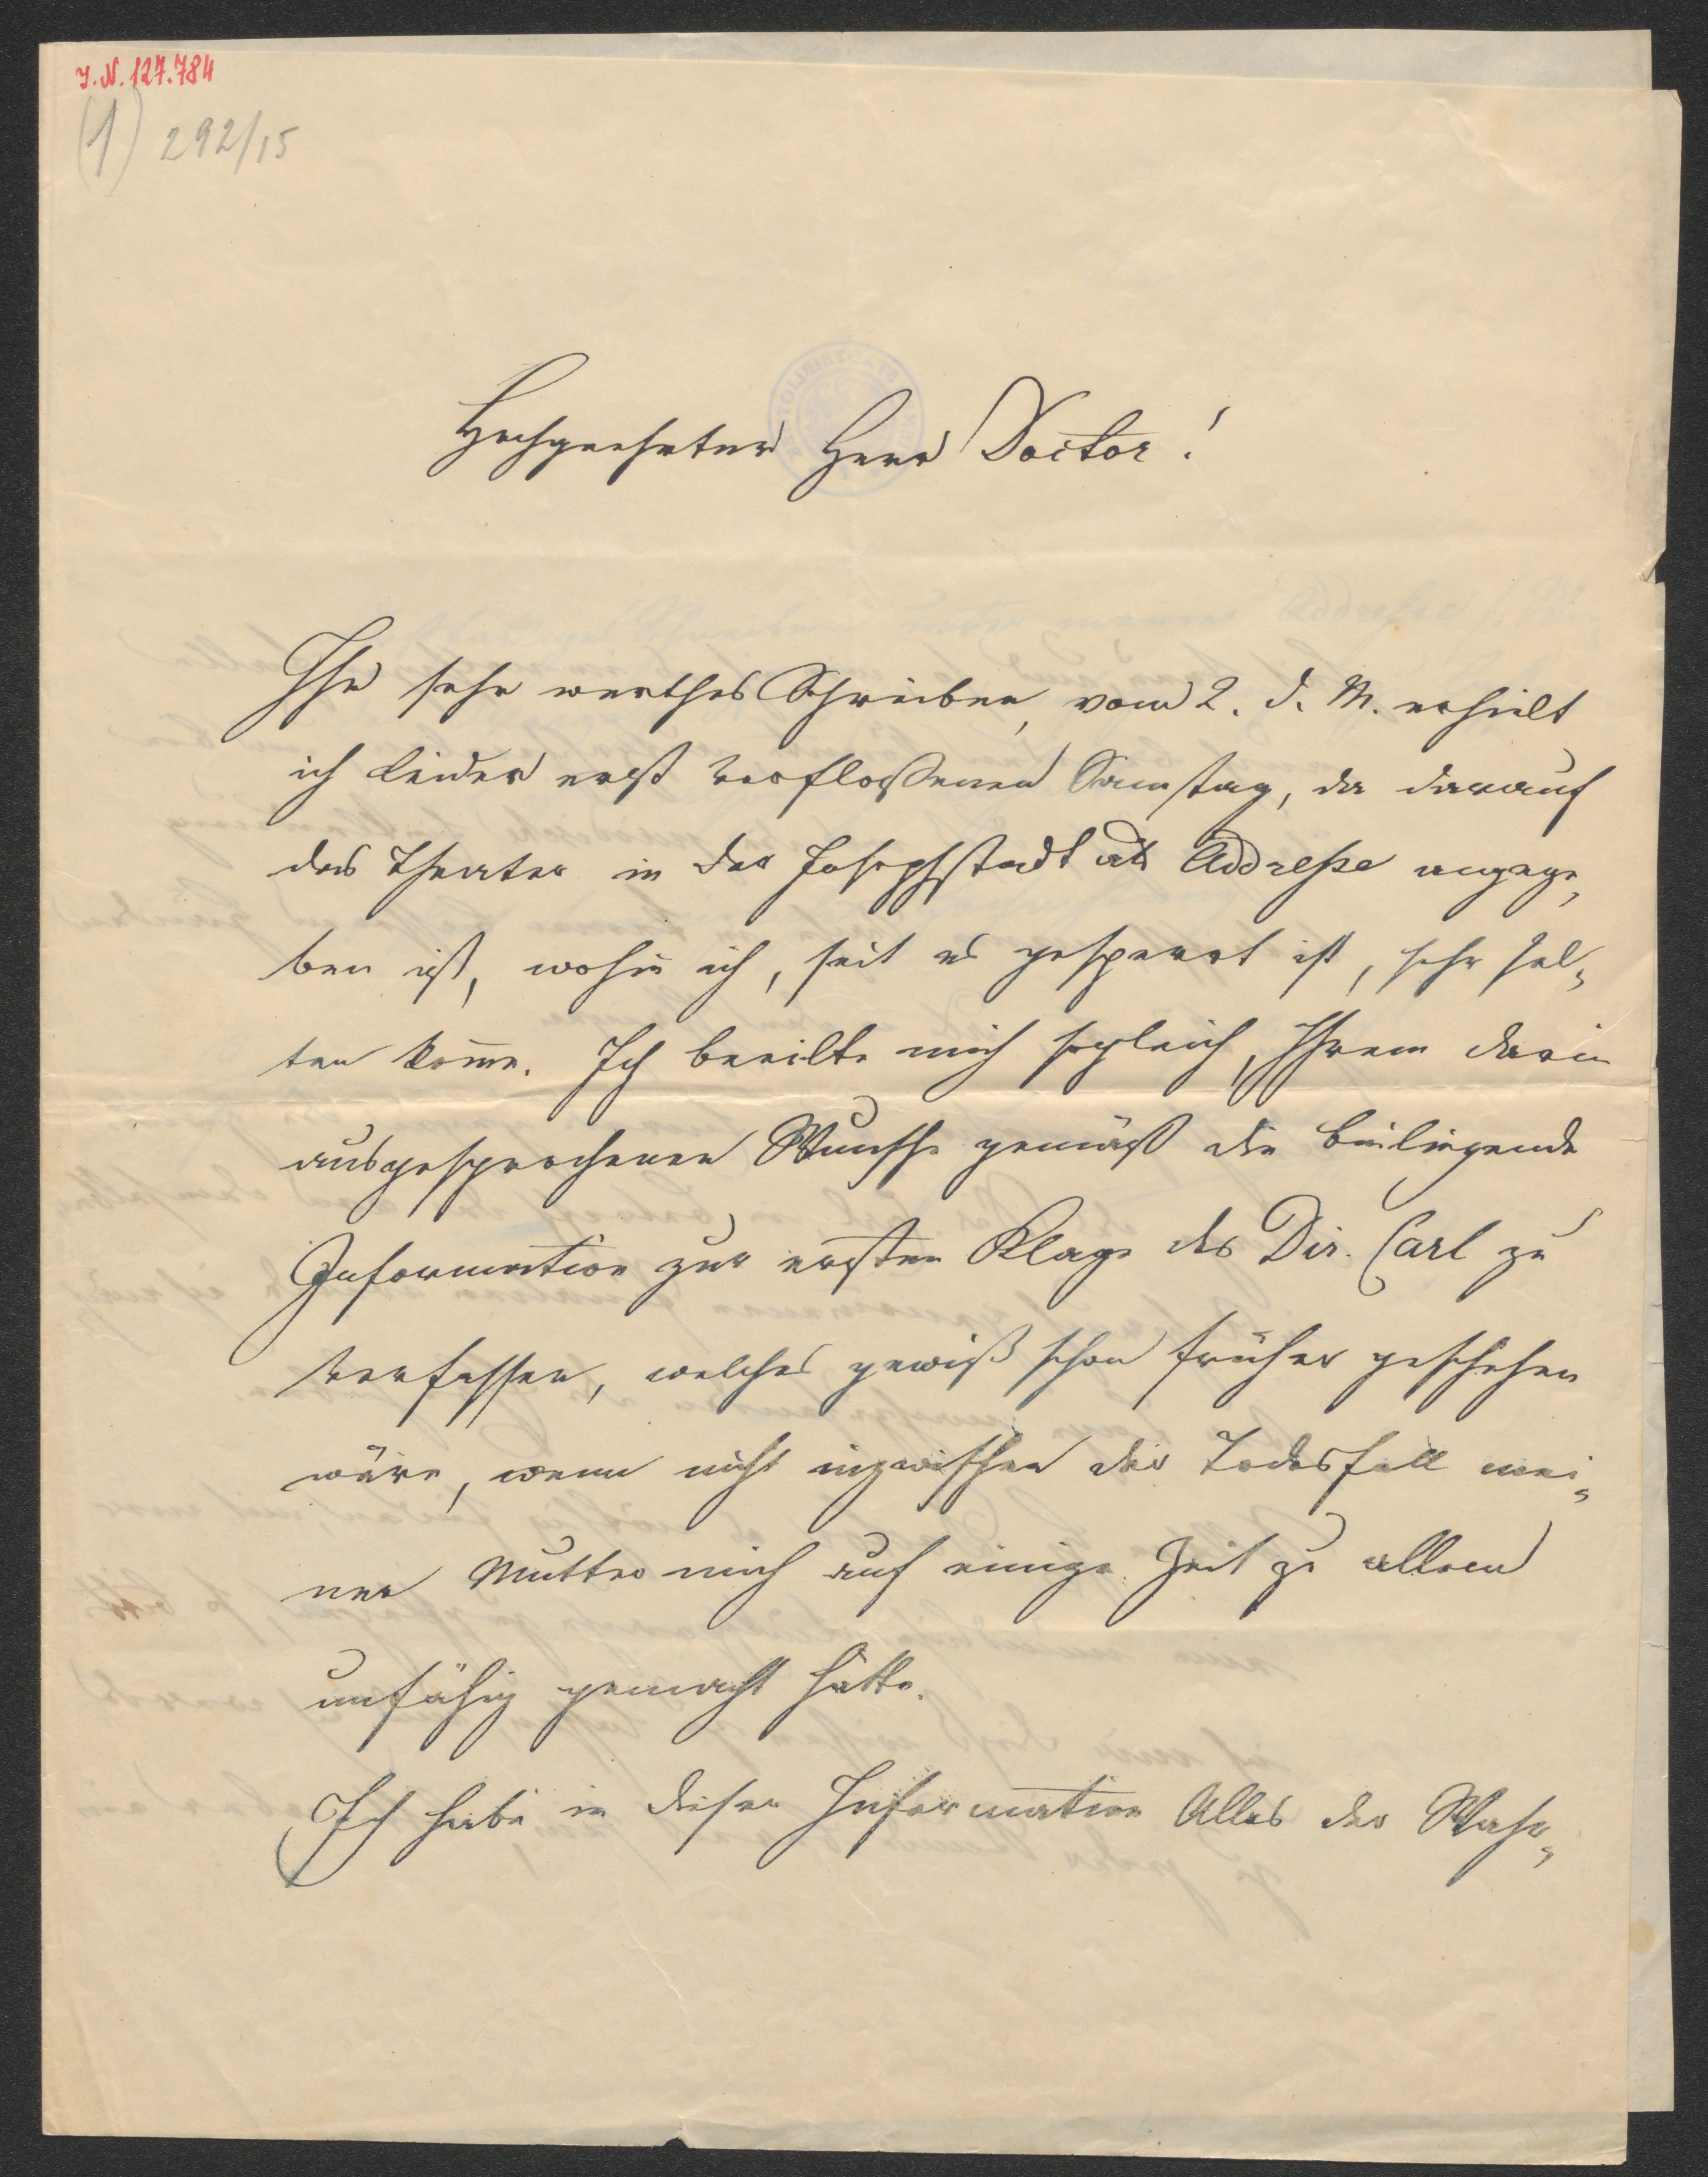 I. N. 127.784
(1) 292/15
Hochgeehrter Herr Doctor!
Ihr sehr werthes Schreiben, vom 2. d. M. erhielt
ich leider erst verfloßenen Samstag, da darauf
das Theater in der Josephstadt als Addresse angege-
ben ist, wohin ich, seit es gesperrt ist, sehr sel-
ten kom̅e. Ich beeilte mich sogleich, Ihrem darin
ausgesprochenen Wunsche gemäß die beiliegende
Information zur ersten Klage des Dir. Carl zu
verfassen, welches gewiß schon früher geschehen
wäre, wenn nicht inzwischen der Todesfall mei-
ner Mutter mich auf einige Zeit zu allem
unfähig gemacht hätte.
Ich habe in dieser Information Alles der Wahr-